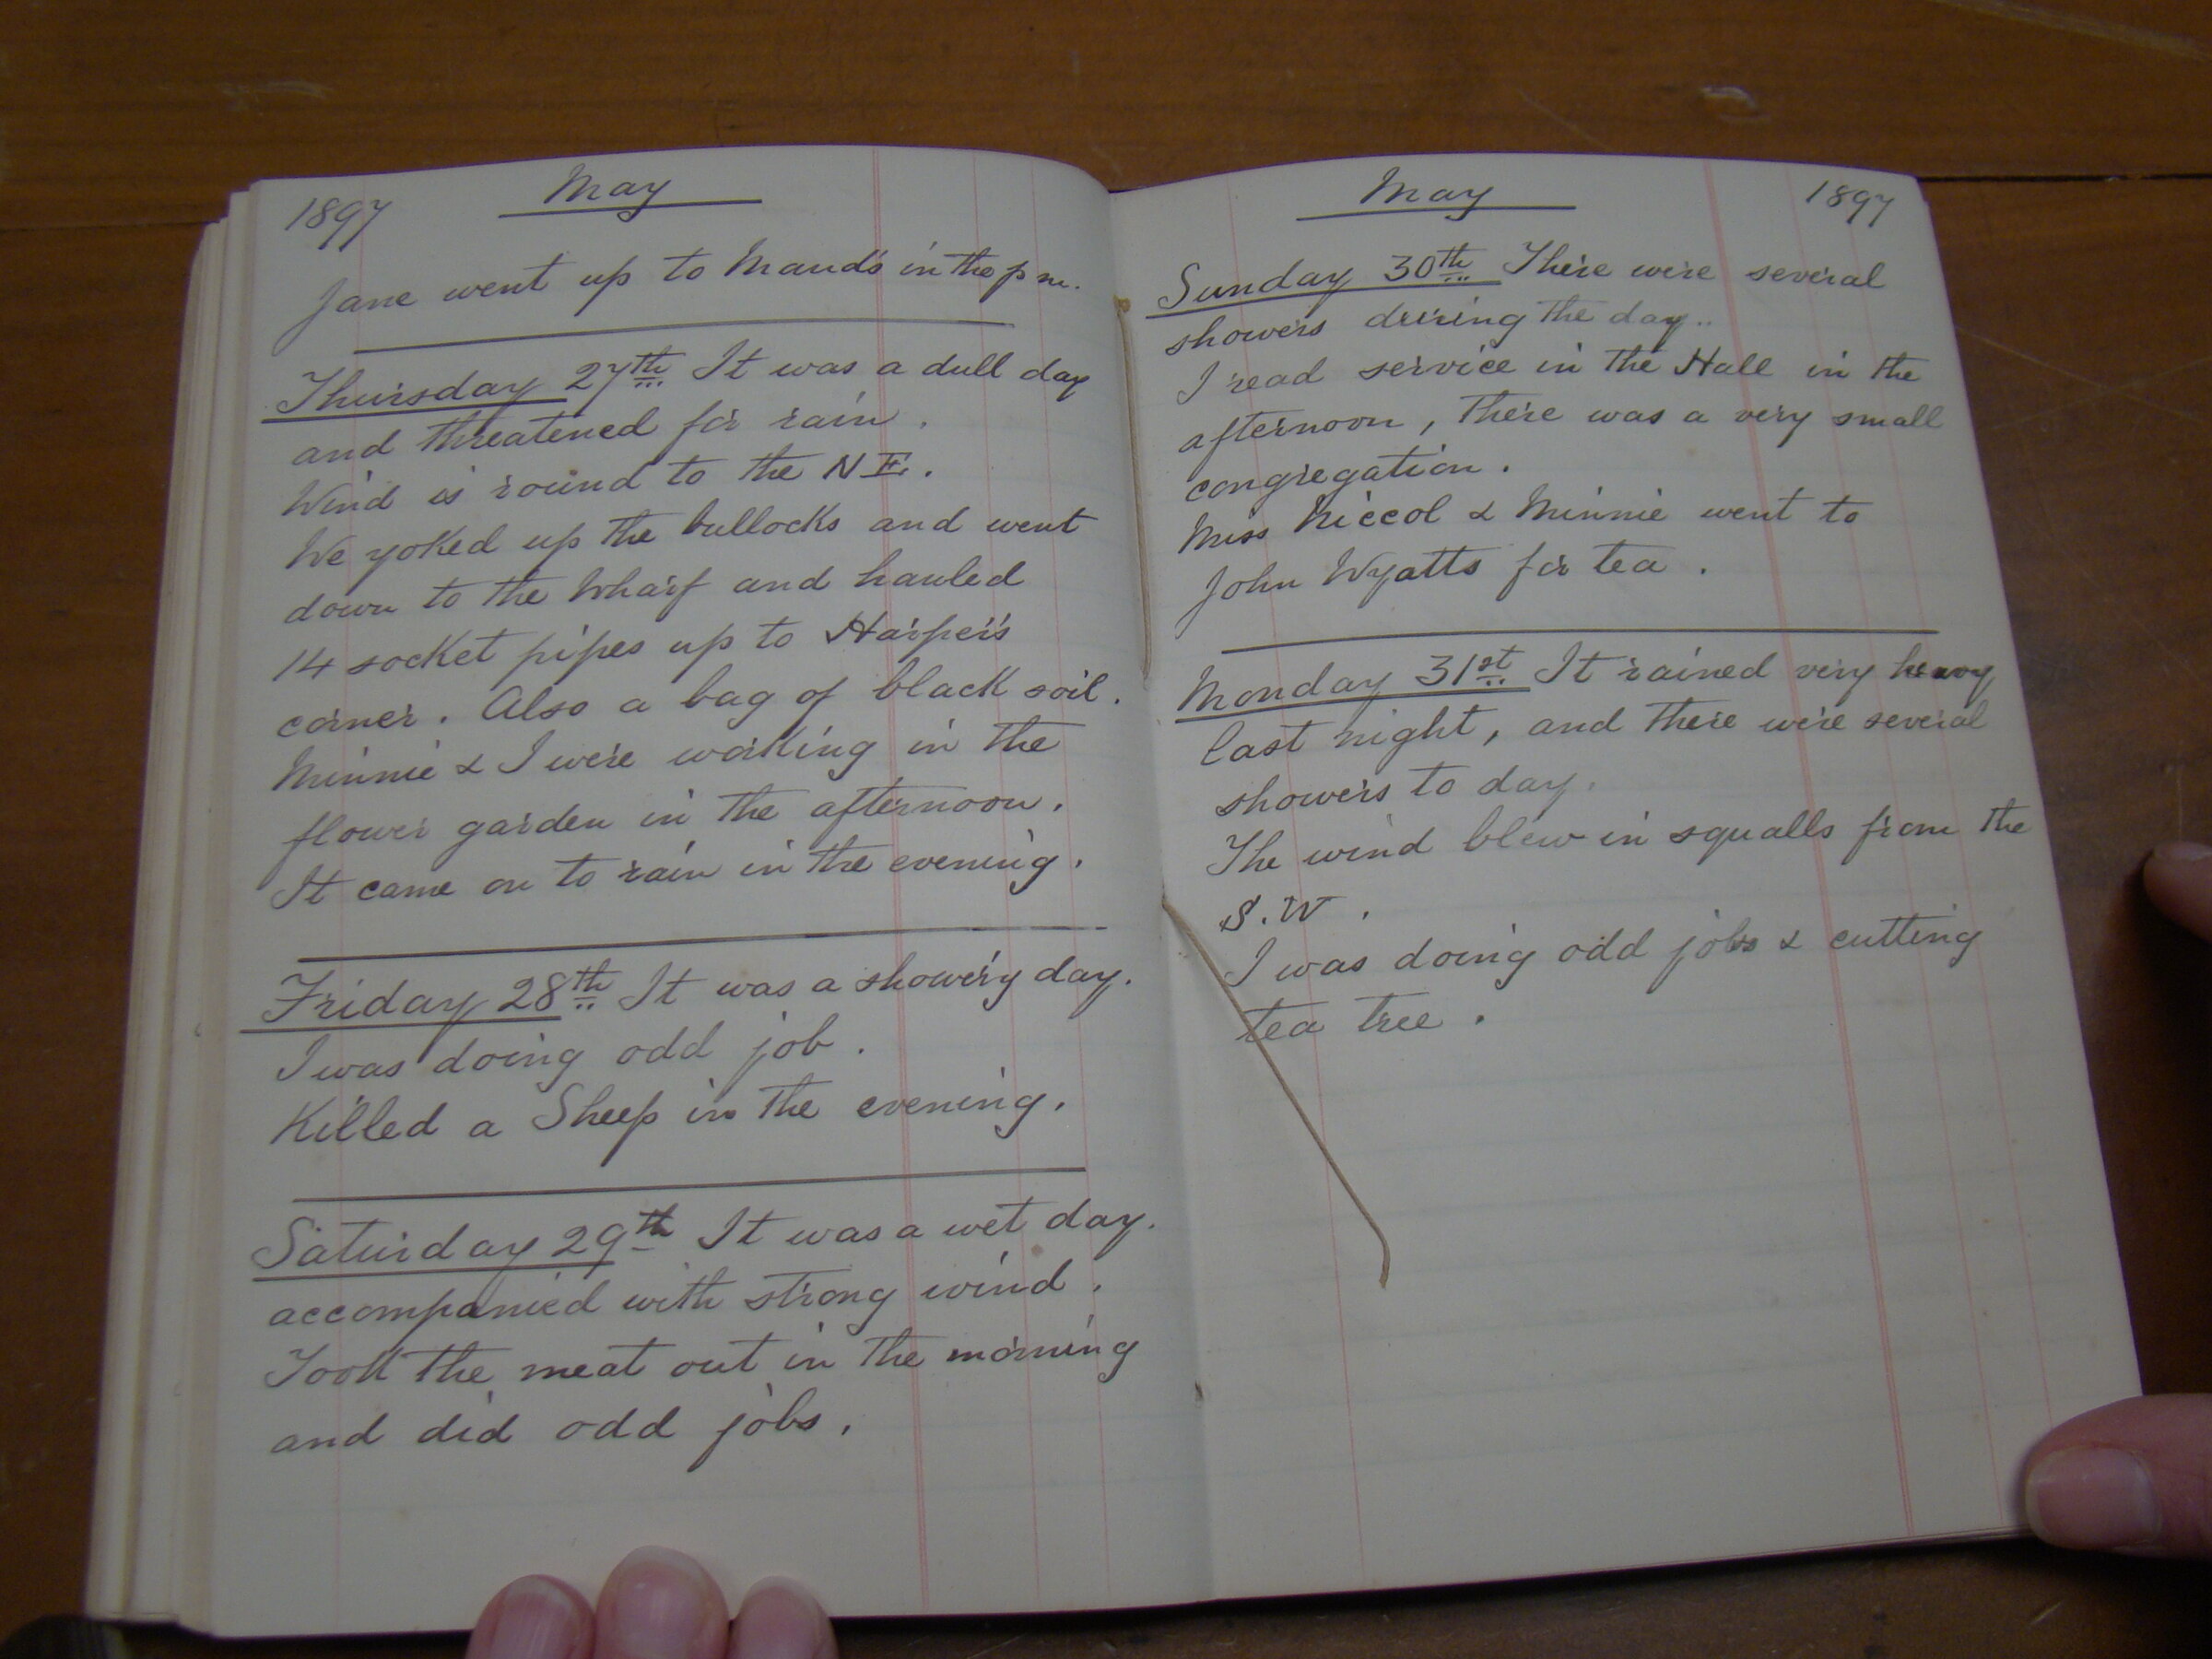 1897
May
Jane went up to Maud's in the p m.
Thursday 27th It was a dull day
and threatened for rain.
Wind is round to the N E.
We yoked up the bullocks and went
down to the Wharf and hauled
14 socket pipes up to Harper's
corner. Also a bag of black soil.
Minnie & I were working in the
flower garden in the afternoon.
It came on to rain in the evening.
Friday 28th It was a showery day.
I was doing odd job.
Killed a Sheep in the evening.
Saturday 29th It was a wet day.
accompanied with strong wind.
Took the meat out in the morning
and did odd jobs.
May
1897
Sunday 30th There were several
showers during the day..
I read service in the Hall in the
afternoon, There was a very small
congregation.
Miss Niccol & Minnie went to
John Wyatts for tea.
Monday 31st It rained very heavy
last night, and there were several
showers to day.
The wind blew in squalls from the
S.W.
I was doing odd jobs & cutting
tea tree.